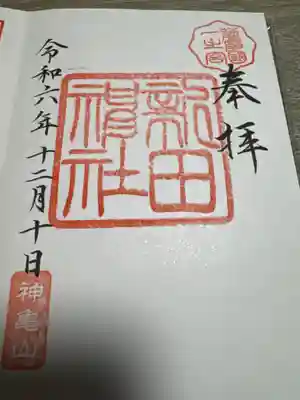 奉拝
新田
神社
令和六年十二月十日
神亀山